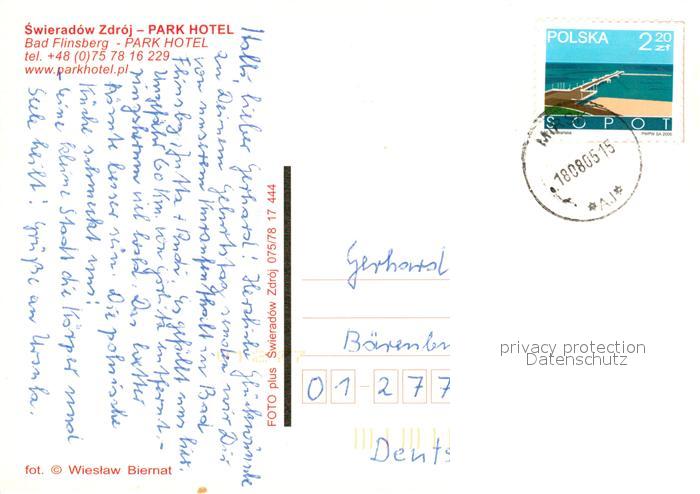 Świeradów Zdrój – PARK HOTEL
Bad Flinsberg - PARK HOTEL
tel. +48 (0)75 78 16 229
www.parkhotel.pl
Hallo, lieber Gerhard! Herzliche Glückwünsche
zu Deinem Geburtstag senden wir Dir
von unserem Kuraufenthalt in Bad
Flinsberg. Jutta + Rudi. Es gefällt uns hier.
Ungefähr 60 km von Görlitz entfernt. -
ringsherum viel Wald. Das Wetter
könnte besser sein. Die polnische
Küche schmeckt uns!
- eine kleine Stadt die Körper und
Seele heilt! Grüße an Ursula.
FOTO plus Świeradów Zdrój 075/78 17 444
POLSKA 2,20 zł
SOPOT
PWPW SA 2005
180805-15
*A.I*
Gerhard
Bären
privacy protection
Datenschutz
01-277
Deuts
fot. © Wiesław Biernat